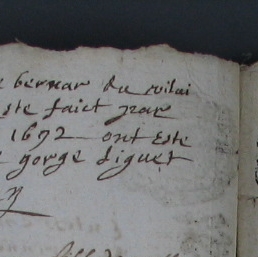 bernar du vilai
este faict par
1692 ont este
gorge siguet